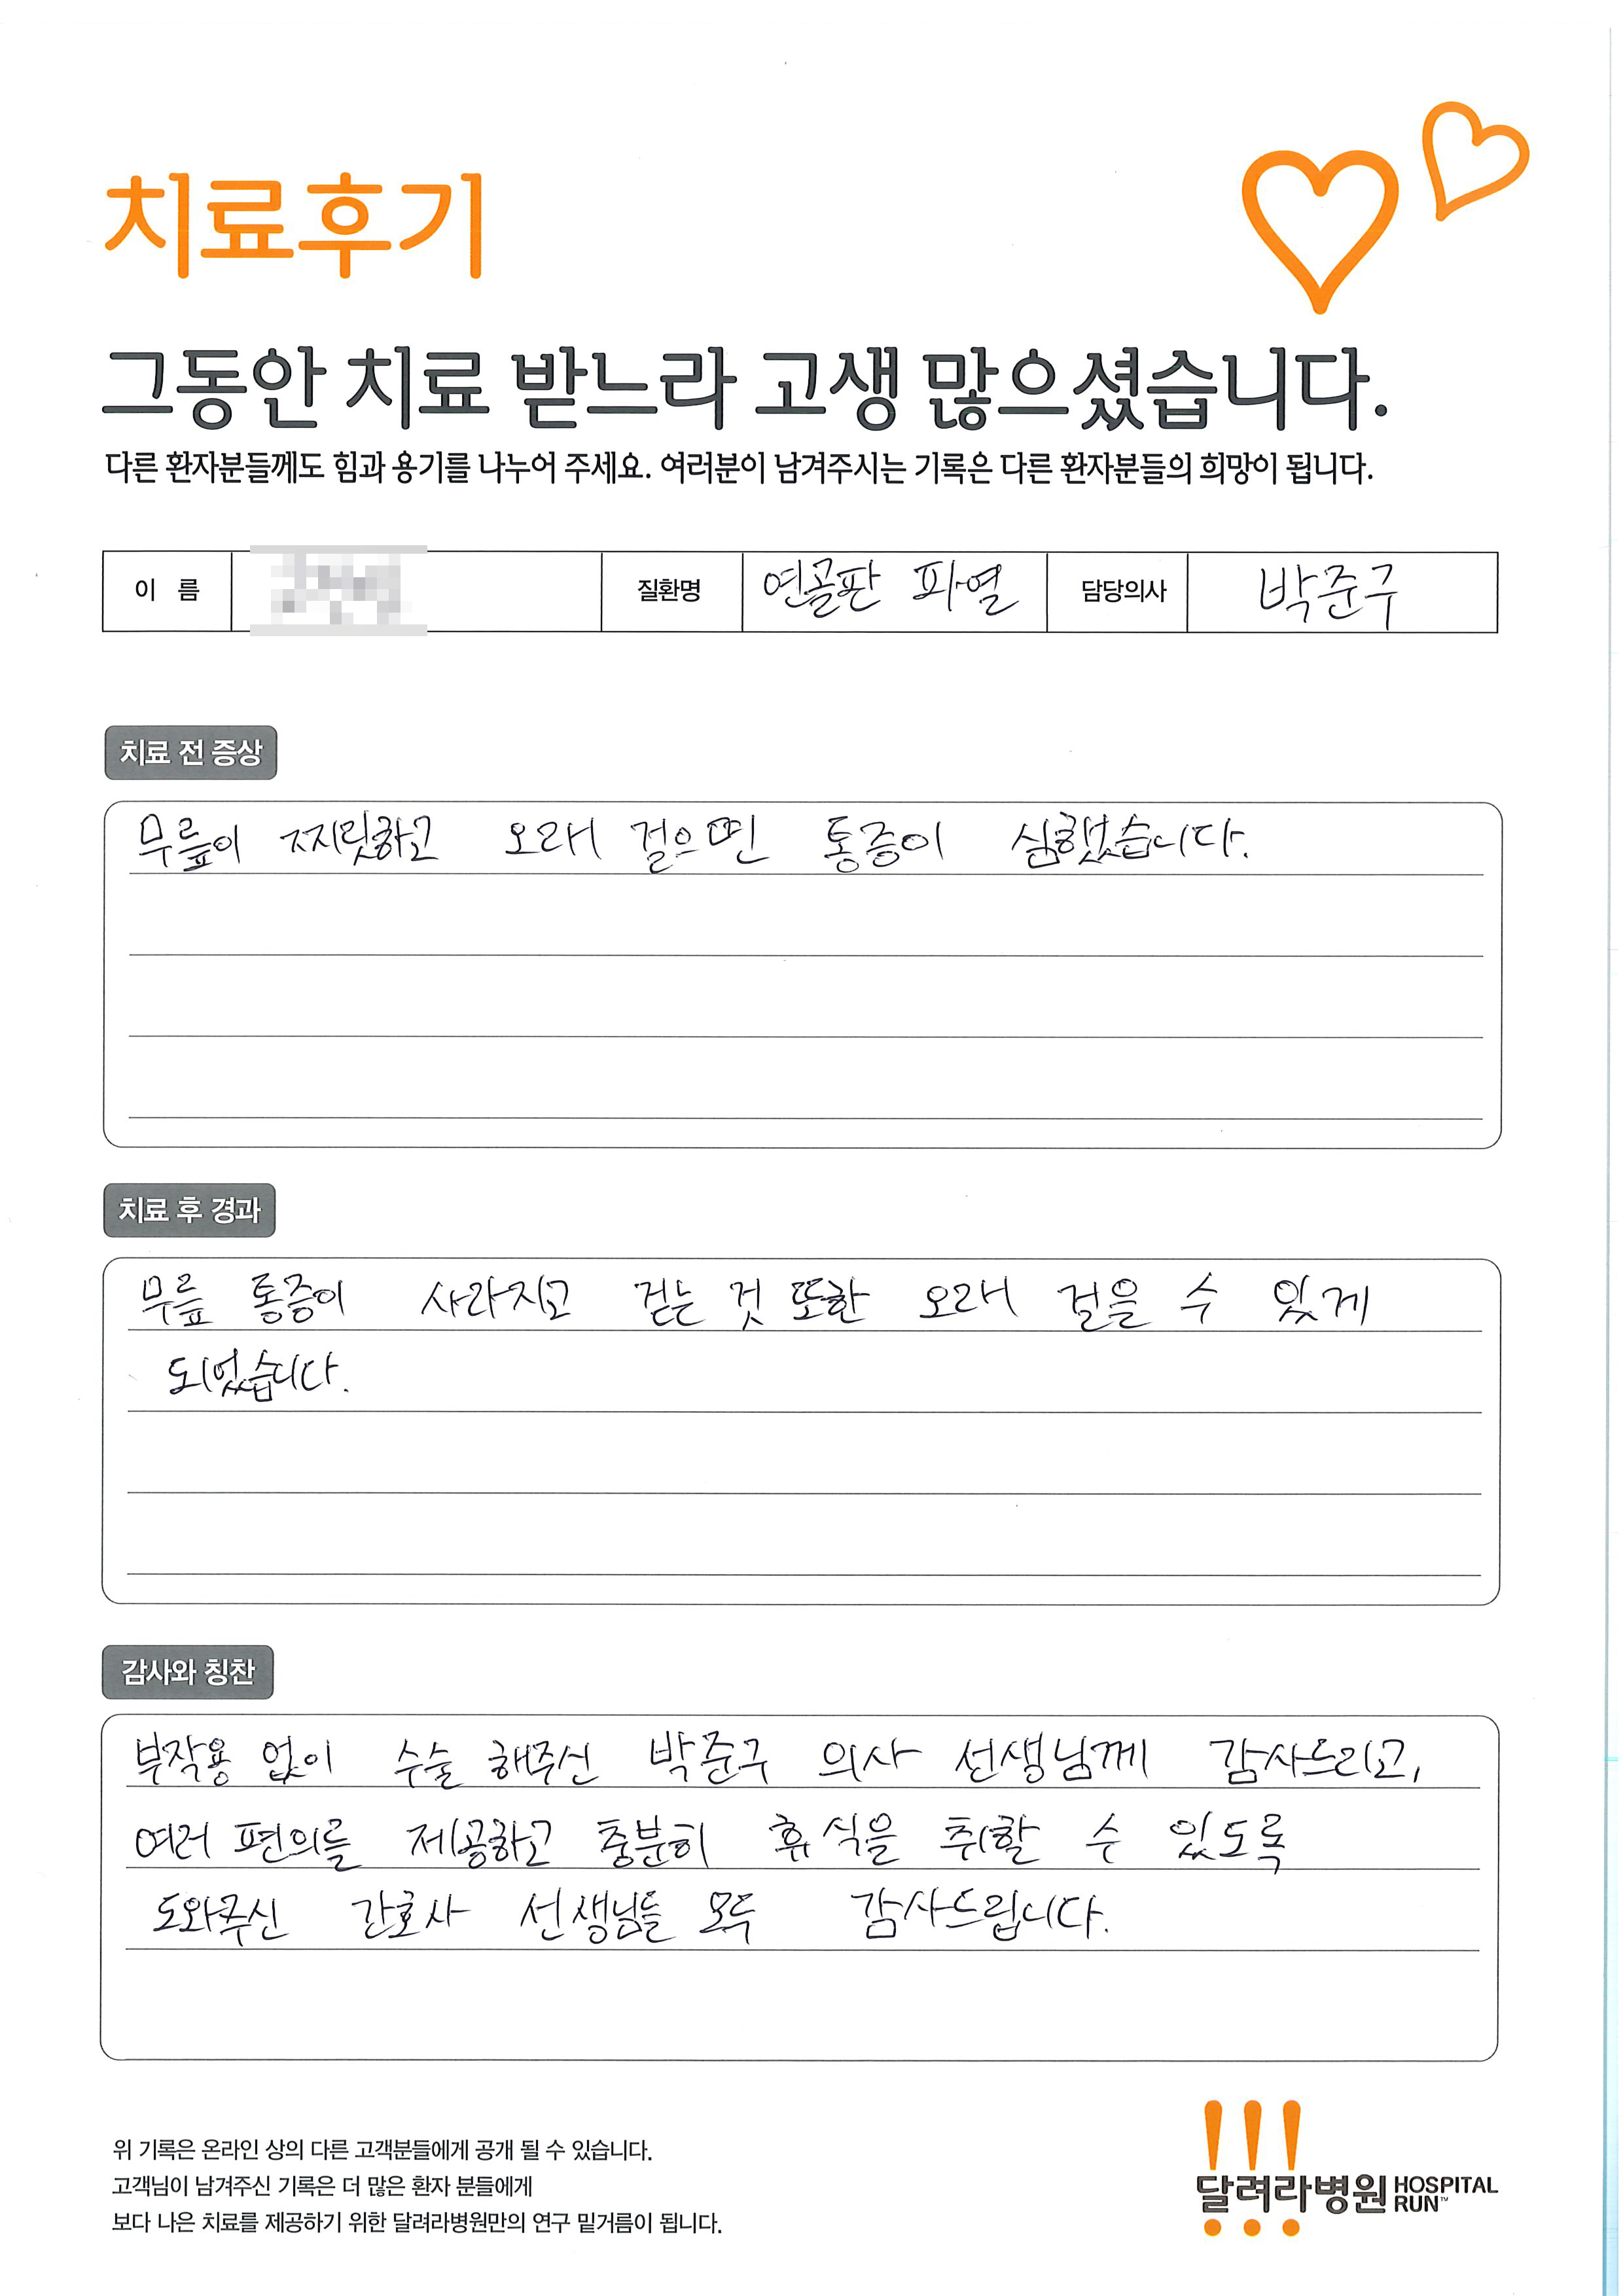 치료후기
그동안 치료 받느라 고생 많으셨습니다.
다른 환자분들께도 힘과 용기를 나누어 주세요. 여러분이 남겨주시는 기록은 다른 환자분들의 희망이 됩니다.
이 름 질환명 연골판 파열 담당의사 박준구
치료 전 증상
무릎이 찌릿하고 오래 걸으면 통증이 심했습니다.
치료 후 경과
무릎 통증이 사라지고 걷는 것 또한 오래 걸을 수 있게
되었습니다.
감사와 칭찬
부작용 없이 수술 해주신 박준구 의사 선생님께 감사드리고,
여러 편의를 제공하고 충분히 휴식을 취할 수 있도록
도와주신 간호사 선생님들 모두 감사드립니다.
위 기록은 온라인 상의 다른 고객분들에게 공개 될 수 있습니다.
고객님이 남겨주신 기록은 더 많은 환자 분들에게
보다 나은 치료를 제공하기 위한 달려라병원만의 연구 밑거름이 됩니다.
달려라병원 HOSPITAL RUN™